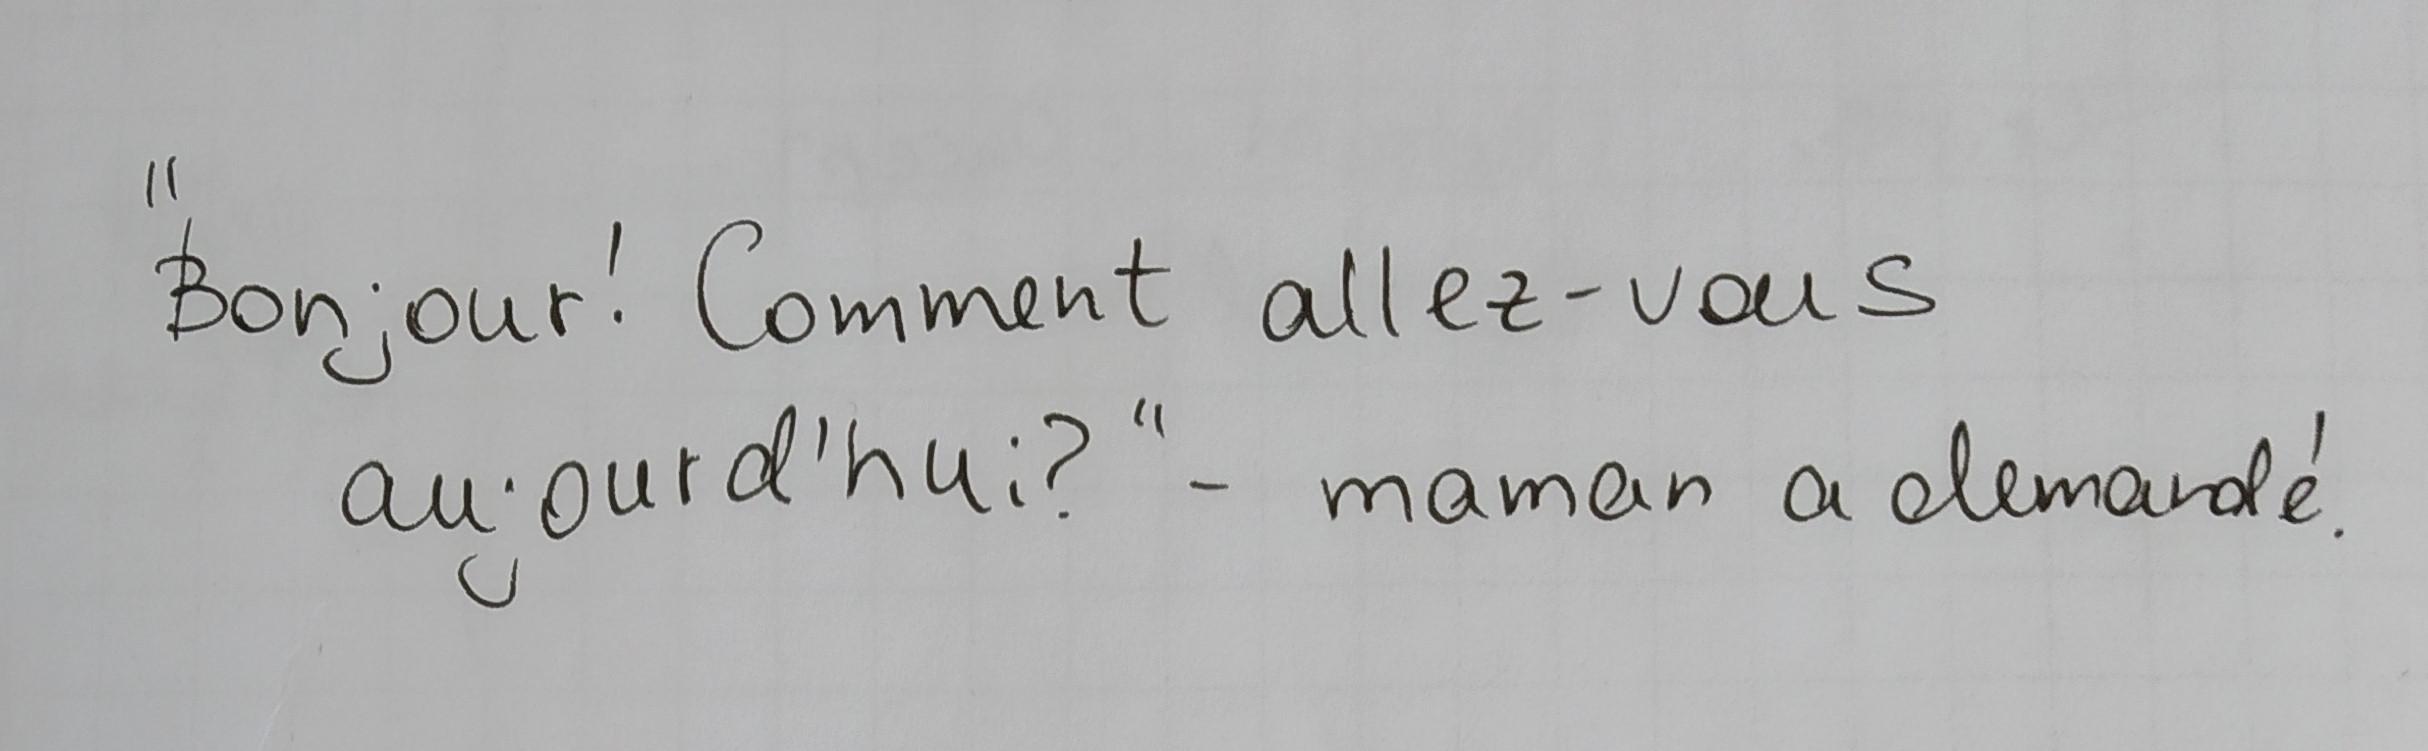 "Bonjour! Comment allez-vous
aujourd'hui?" - maman a demandé.